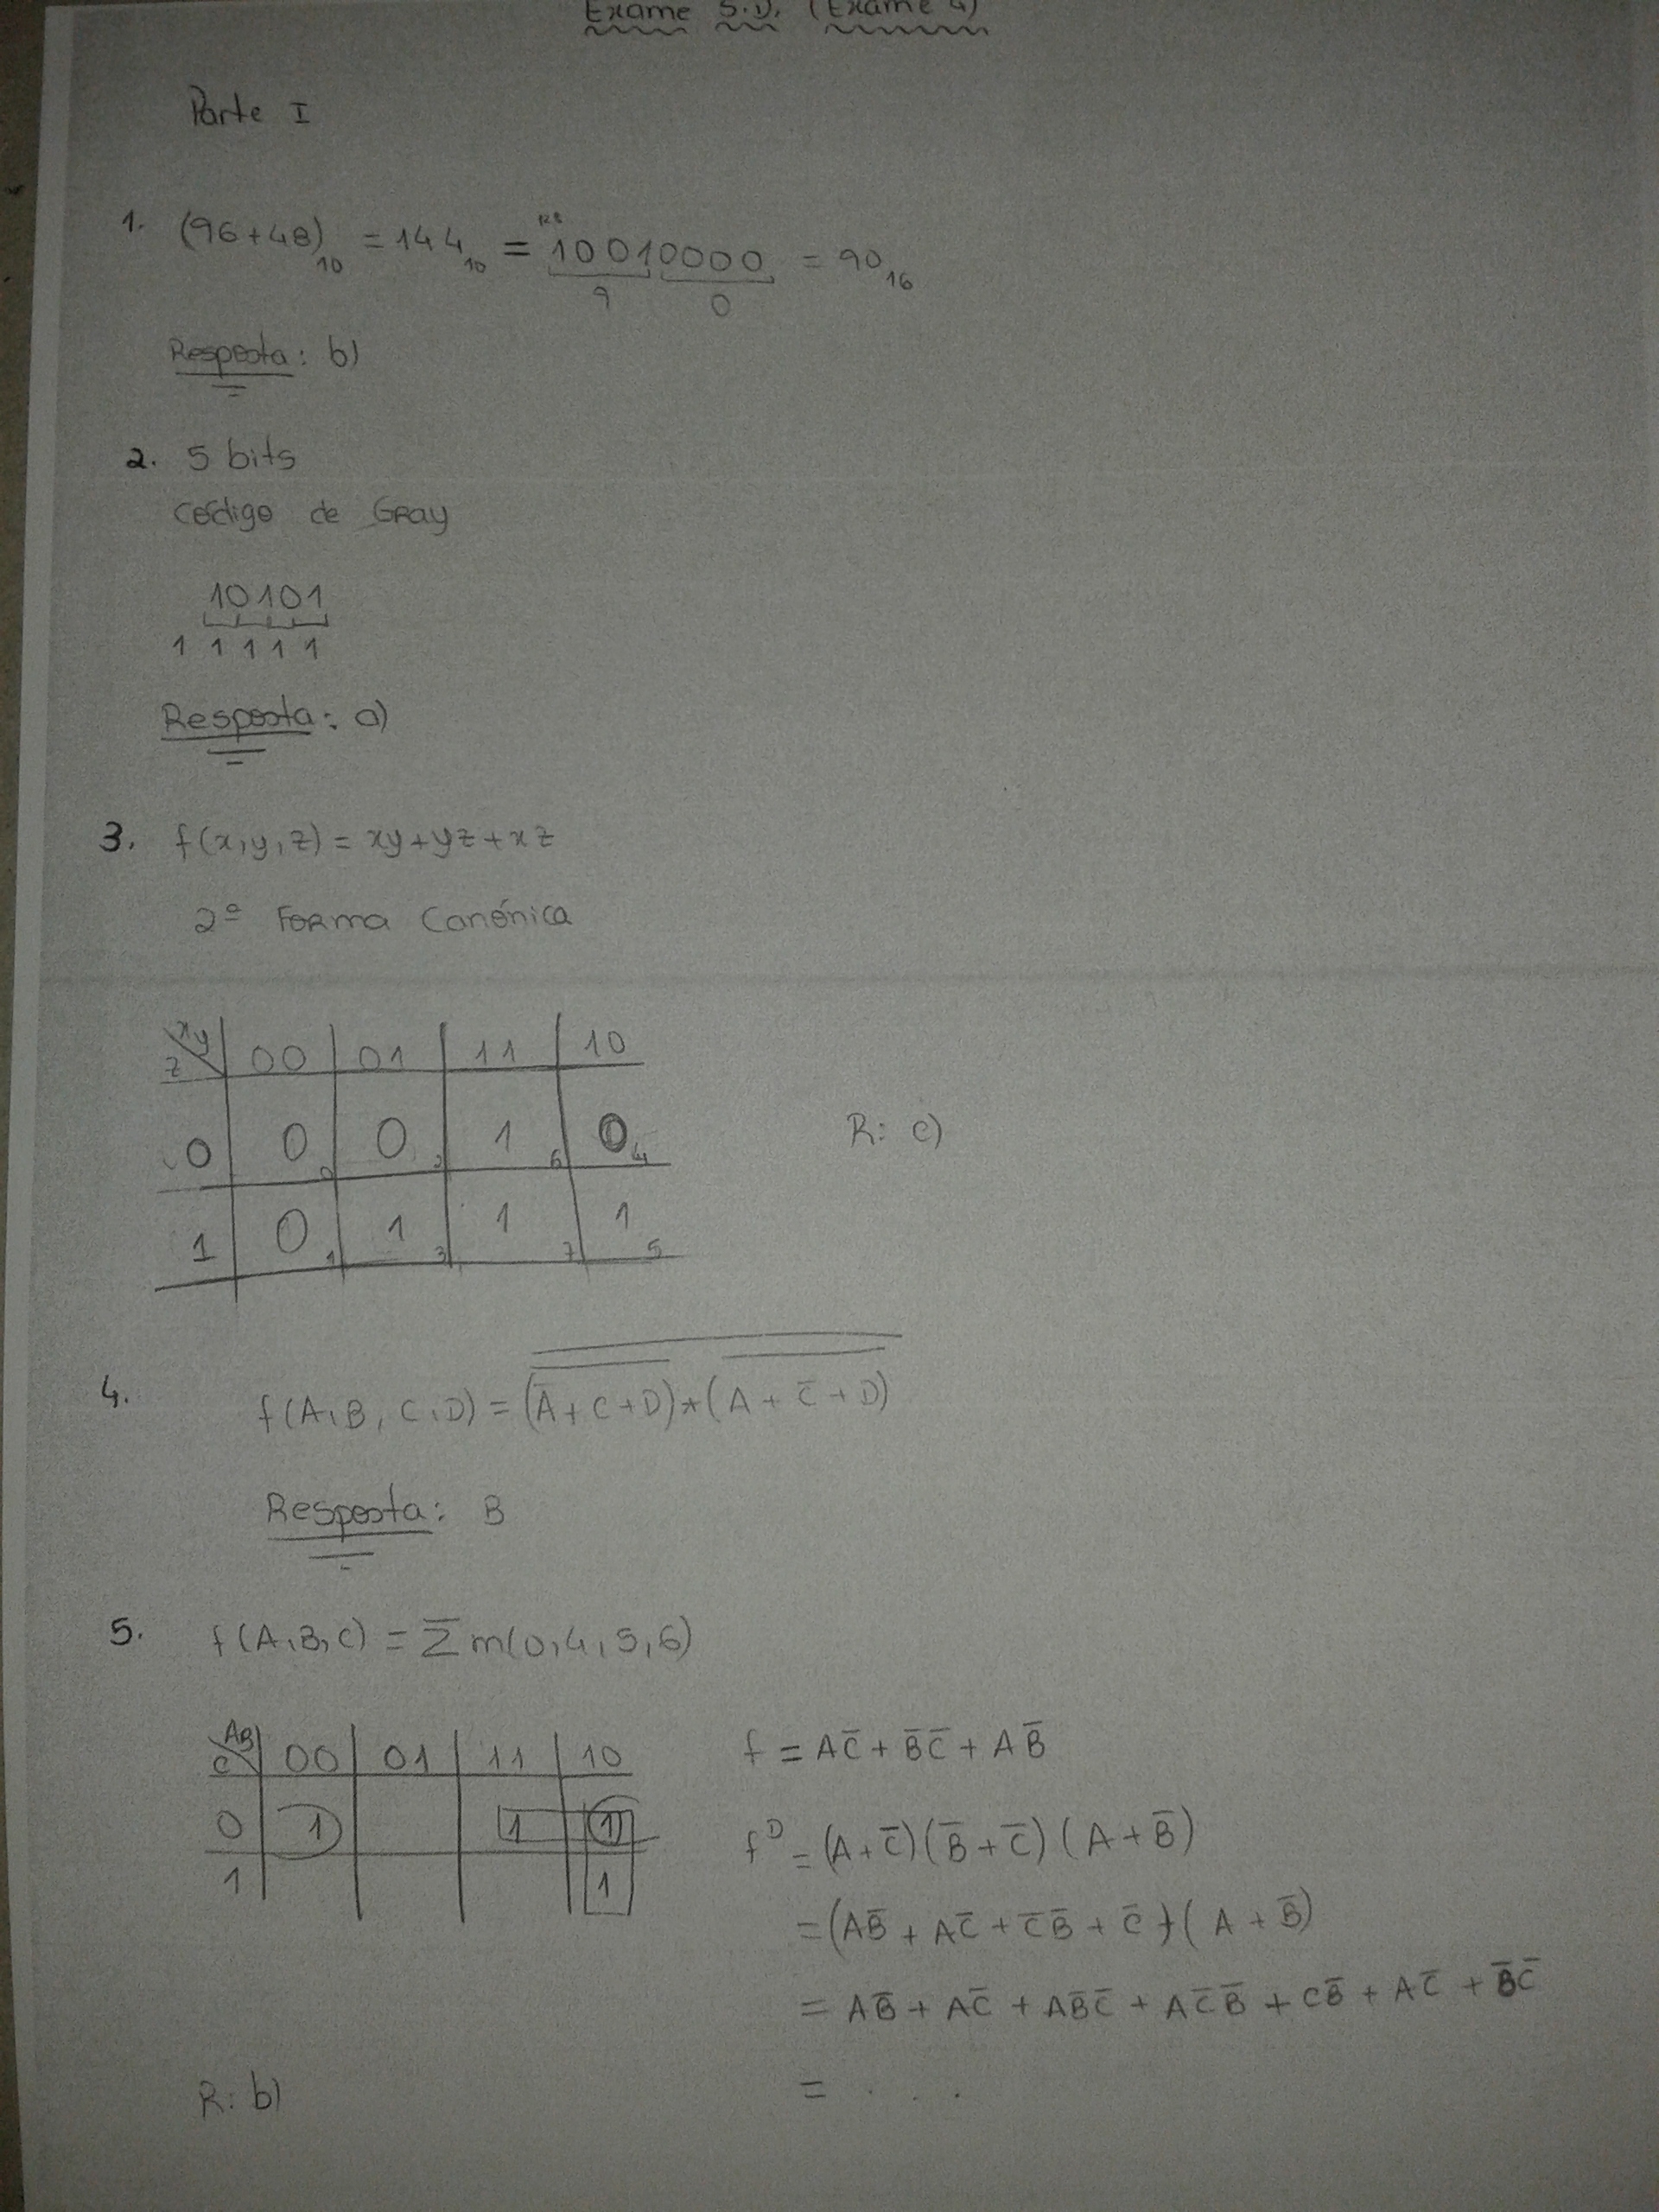 Exame S.D. (Exame 4)
Parte I
1. (96+48)₁₀ = 144₁₀ = 10010000 = 90₁₆
9 0
Resposta: b)
2. 5 bits
Código de Gray
10101
1 1 1 1 1
Resposta: a)
3. f(x,y,z) = xy+yz+xz
2ª Forma Canónica
xy
z 00 01 11 10
0 0₀ 0₂ 1₆ 0₄
R: c)
1 0₁ 1₃ 1₇ 1₅
4. f(A,B,C,D) = (A̅+C+D)*(A+C̅+D)
Resposta: B
5. f(A,B,C) = Σm(0,4,5,6)
AB
C 00 01 11 10
0 1 1 1
1 1
f = AC̅ + B̅C̅ + AB̅
fᴰ = (A+C̅)(B̅+C̅)(A+B̅)
= (AB̅ + AC̅ + C̅B̅ + C̅)(A+B̅)
= AB̅ + AC̅ + AB̅C̅ + AC̅B̅ + CB̅ + AC̅ + B̅C̅
= . . .
R: b)